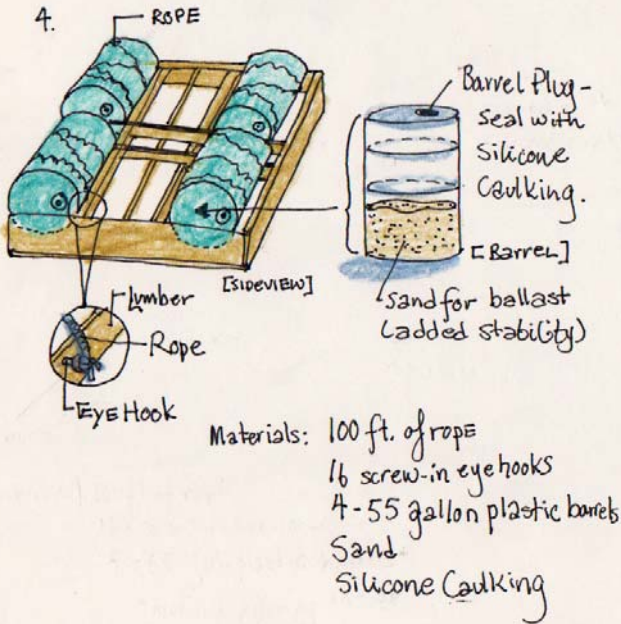 4.
ROPE
Barrel Plug -
seal with
Silicone
Caulking.
[Barrel]
Sand for ballast
(added stability)
[SIDEVIEW]
Lumber
Rope
EYE HOOK
Materials: 100 ft. of rope
16 screw-in eyehooks
4-55 gallon plastic barrels
Sand
Silicone Caulking